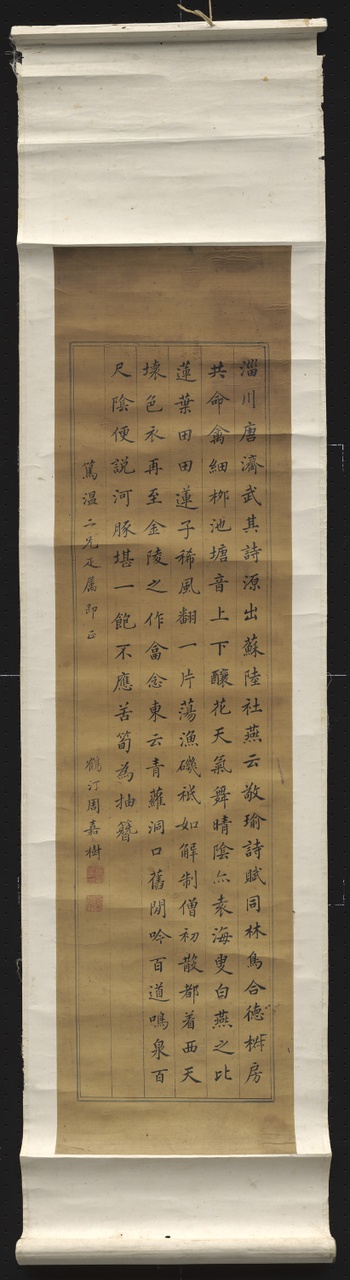 淄川唐濟武其詩源出蘇陸社燕云敬瑜詩賦同林鳥合德椒房
共命禽細柳池塘音上下釀花天氣舞晴陰亦袁海叟白燕之比
蓮葉田田蓮子稀風翻一片蕩漁磯祗如解制僧初散都着西天
壊色衣再至金陵之作畣念東云青蘿洞口舊閒吟百道鳴泉百
尺陰便説河豚堪一飽不應苦筍為抽簪
篤溫二兄疋属即正
鶴汀周嘉樹